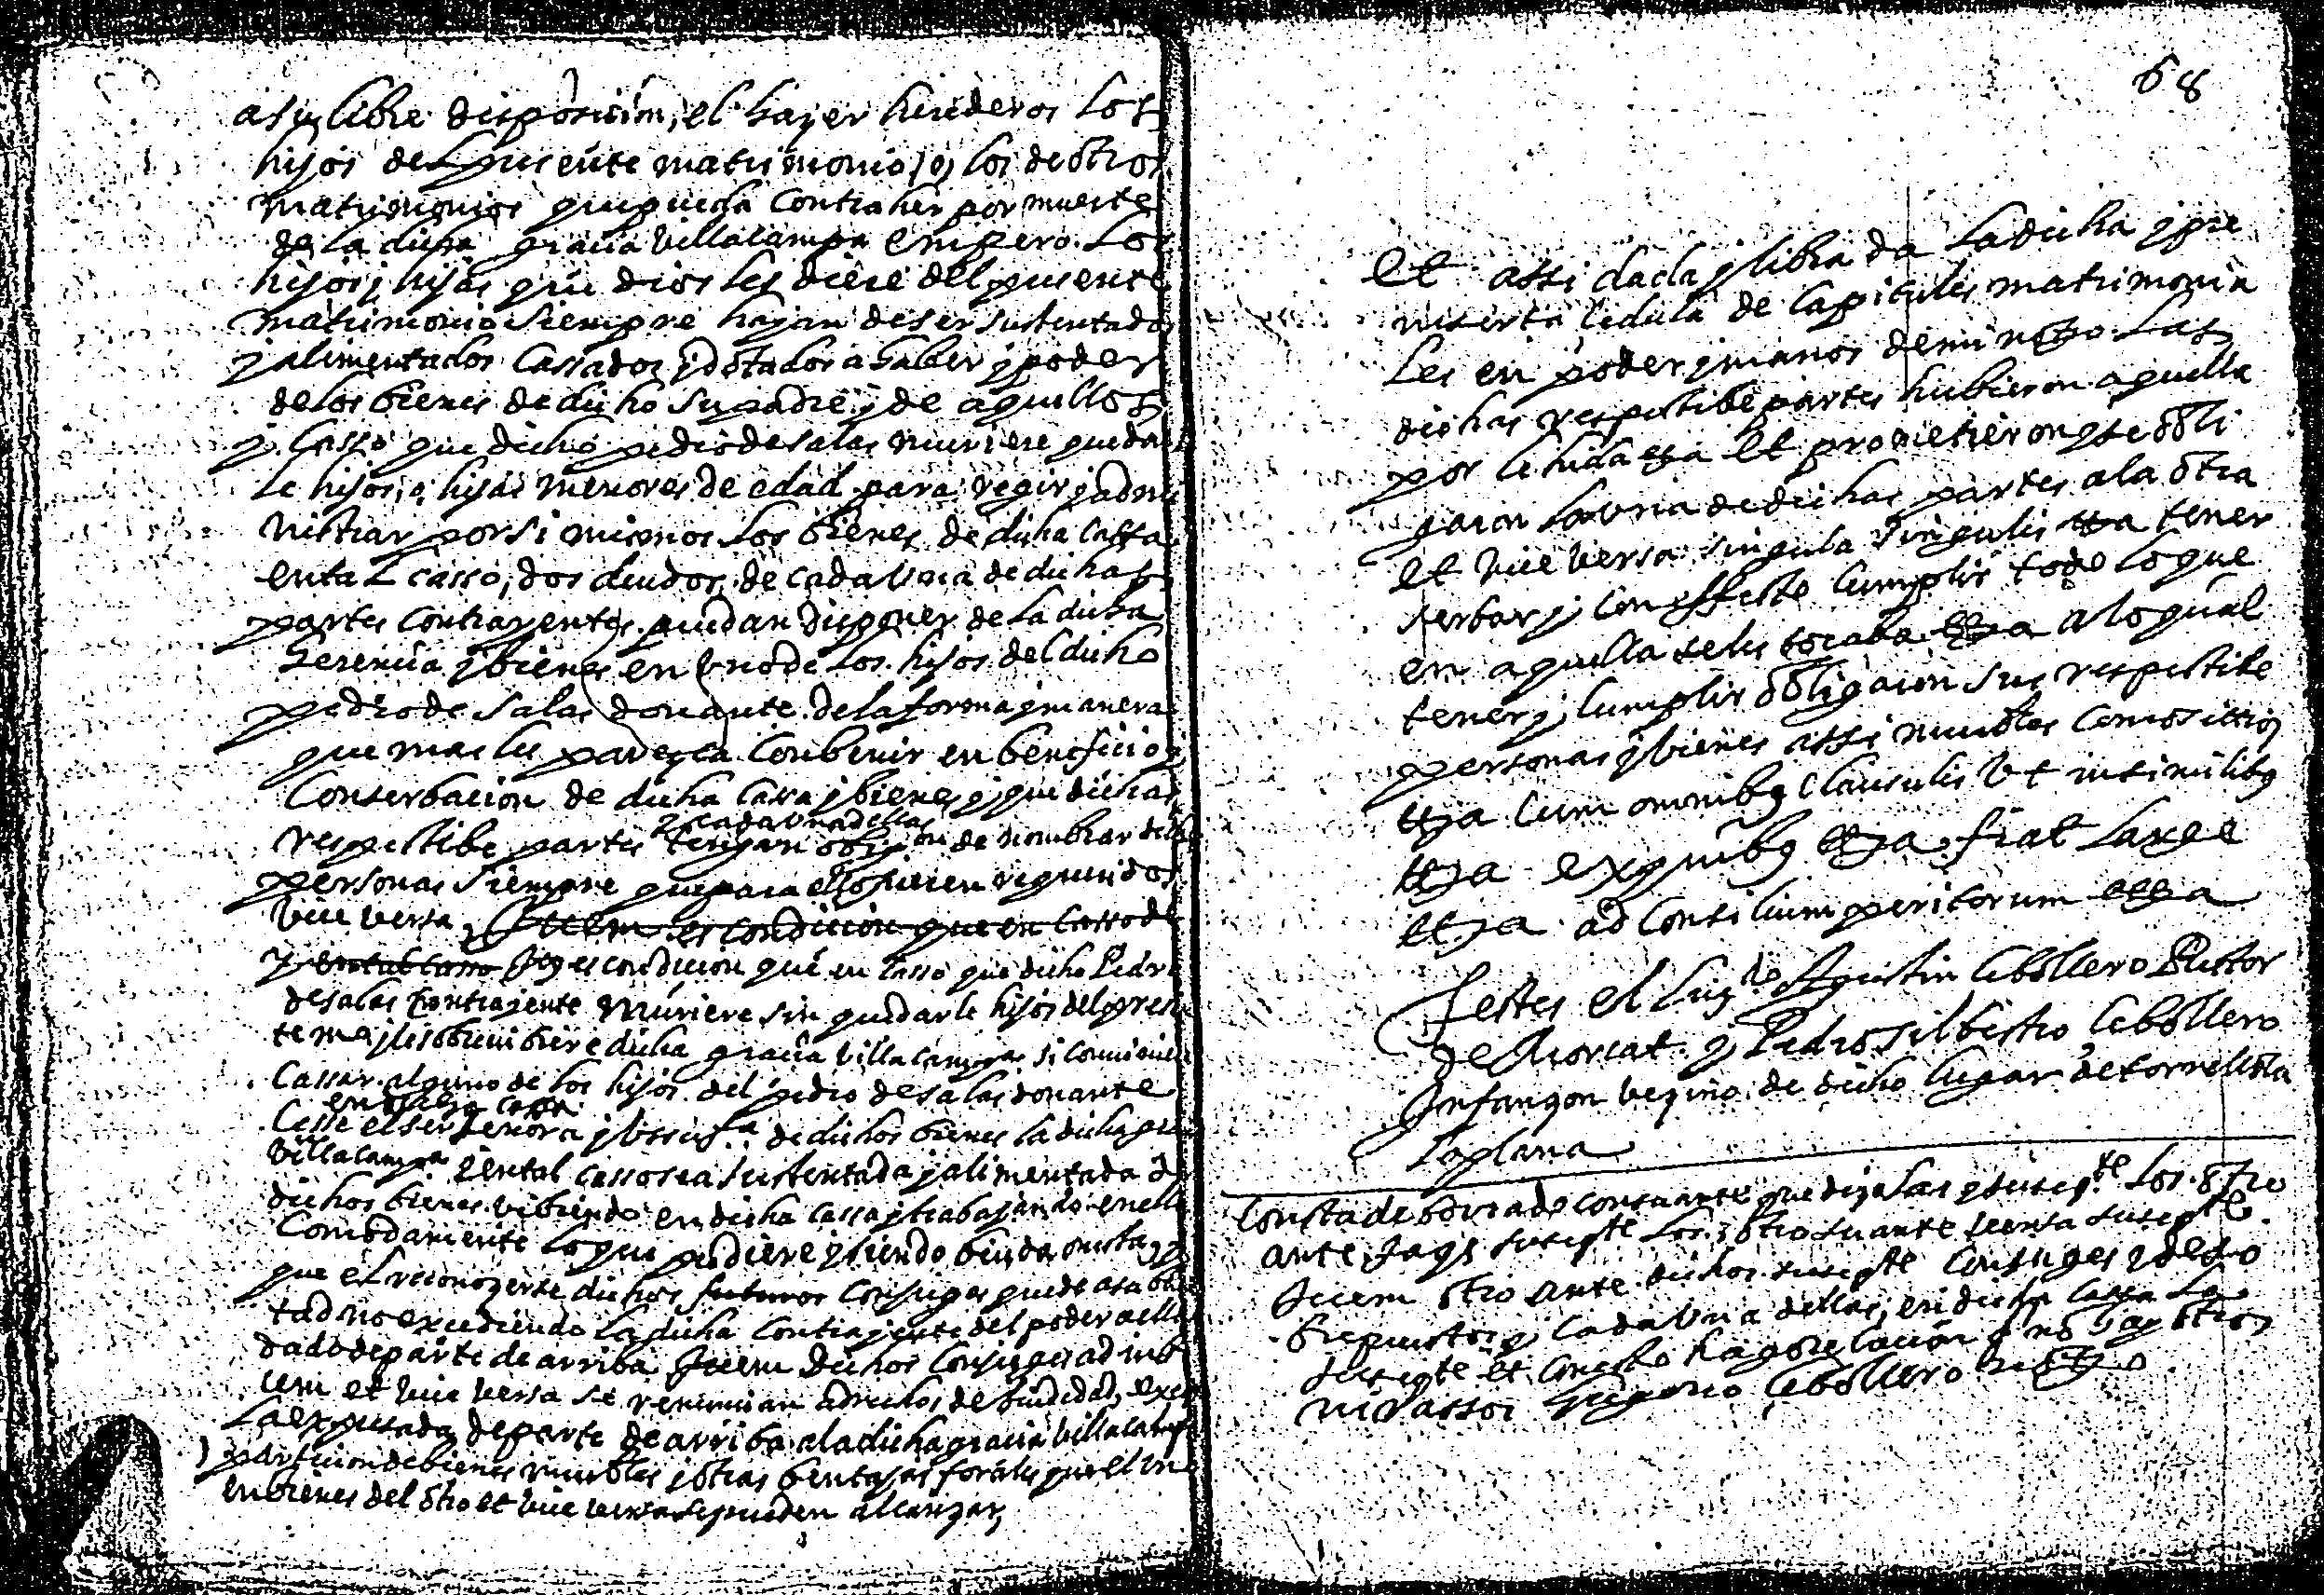 a su libre disposicion, el hazer herederos los
hijos del presente matrimonio, o, los de otros
matrimonios que pueda contraher por muerte
de la dicha gracia Villacampa empero los
hijos, y hijas que dios les diere del presente
matrimonio siempre hayan de ser sustentados
y alimentados cassados y dotados a haber y poder
de los bienes de dicho su padre y de aquellos
y casso que dicho pedro de salas muriere quedan
le hijos, o, hijas menores de edad para regir y admi
nistrar por si mismos los bienes de dicha cassa
en tal casso, dos deudos, de cada una de dichas
partes contrayentes puedan disponer de la dicha
herencia y bienes en uno de los hijos del dicho
pedro de salas donante de la forma y manera
que mas les parezca conbenir en beneficio y
conserbacion de dicha cassa y bienes y que dichas
respectibe partes y cada una dellas tengan oblig.on de nombrar dichas
personas siempre que para ello fueren requeridos
vice versa, Item es condicion que en casso de
y en tal casso Item es condicion que en casso que dicho Pedro
de salas contrayente muriere sin quedarle hijos del presen
te ma.o y les sobrevibiere dicha gracia Villacampa si conviniere
cassar alguno de los hijos del pedro de salas donante
en dicha cassa
cesse el ser señora y ussuf.ta de dichos bienes la dicha gracia
Villacampa y en tal casso sea sustentada y alimentada de
dichos bienes vibiendo en dicha cassa y trabajando en ella
comodamente lo que pudiere y siendo viuda onesta
que el reconozerse dichos futuros conjuges quede a su volun
tad no excediendo la dicha contrayente del poder a ella
dado de parte de arriba Item dichos conjuges ad invi
cem et vice versa se renuncian adrechos de viudedad, exce
la expresada de parte de arriba a la dicha gracia Villacampa
y particion de bienes muebles y otras bentajas forales que el uno
en bienes del otro et vice versa se pueden alcanzar,
68
Et assi dada y librada la dicha y pre
inserta cedula de capitules matrimonia
les en poder y manos de mi notro las
dichas respectibe partes hubieron aquella
por lehida etza et prometieron y se obli
garon la una de dichas partes a la otra
et vice versa singula singulis etza tener
serbar y con effecto cumplir todo lo que
en aquella se les tocaba etza a lo qual
tener y cumplir obligaron sus respectibe
personas y bienes assi muebles como sittios
etza cum omnibus clausulis ut in similibus
etza ex quibus etza fiat large
etza ad consilium peritorum etza
Testes el Liz.do Agustin Cebollero Rector
de Morcat y Pedro Silbestro Cebollero
Infanzon vezino de dicho lugar de torrellola
Laplana
Consta de borrado con su ante que dize las y sucep.te los otro
ante hays sucep.te los, otro su ante lienta sucep.te
Item otro ante dichos sucep.te conjuges y de so
brepuestos y cada una dellas, en dicha cassa la
sucep.te et con esto hago relacion q no hay otros
nid assoi Gregorio Cebollero notro